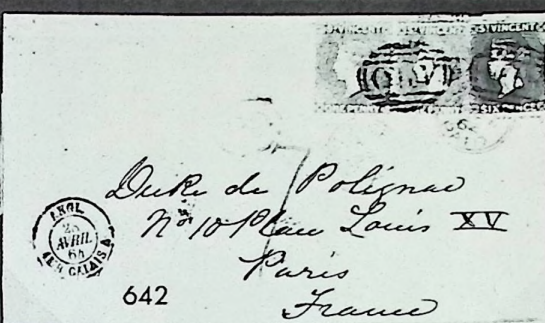 ST VINCENT
ONE PENNY PENNY SIX PENCE
A10
Duke de Polignac
No 10 Place Louis XV
Paris
France
ANGL.
28
AVRIL
64
CALAIS
642